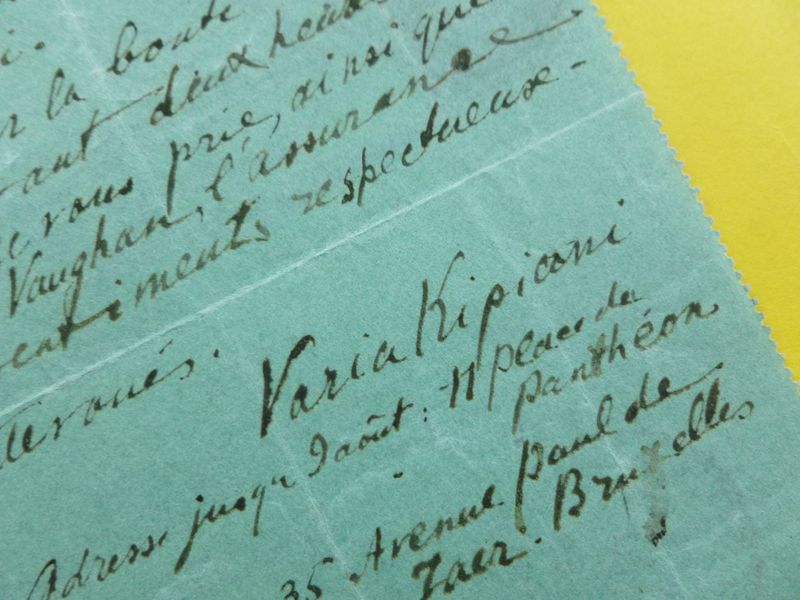 la bonté
deux heures
vous prie, ainsi que
Vaughan, l'assurance
sentiments respectueuse-
dévoués.
Varia Kipiani
Adresse jusqu'9 août : 11 place du
Panthéon
35 Avenue Paul de
Jaer. Bruxelles